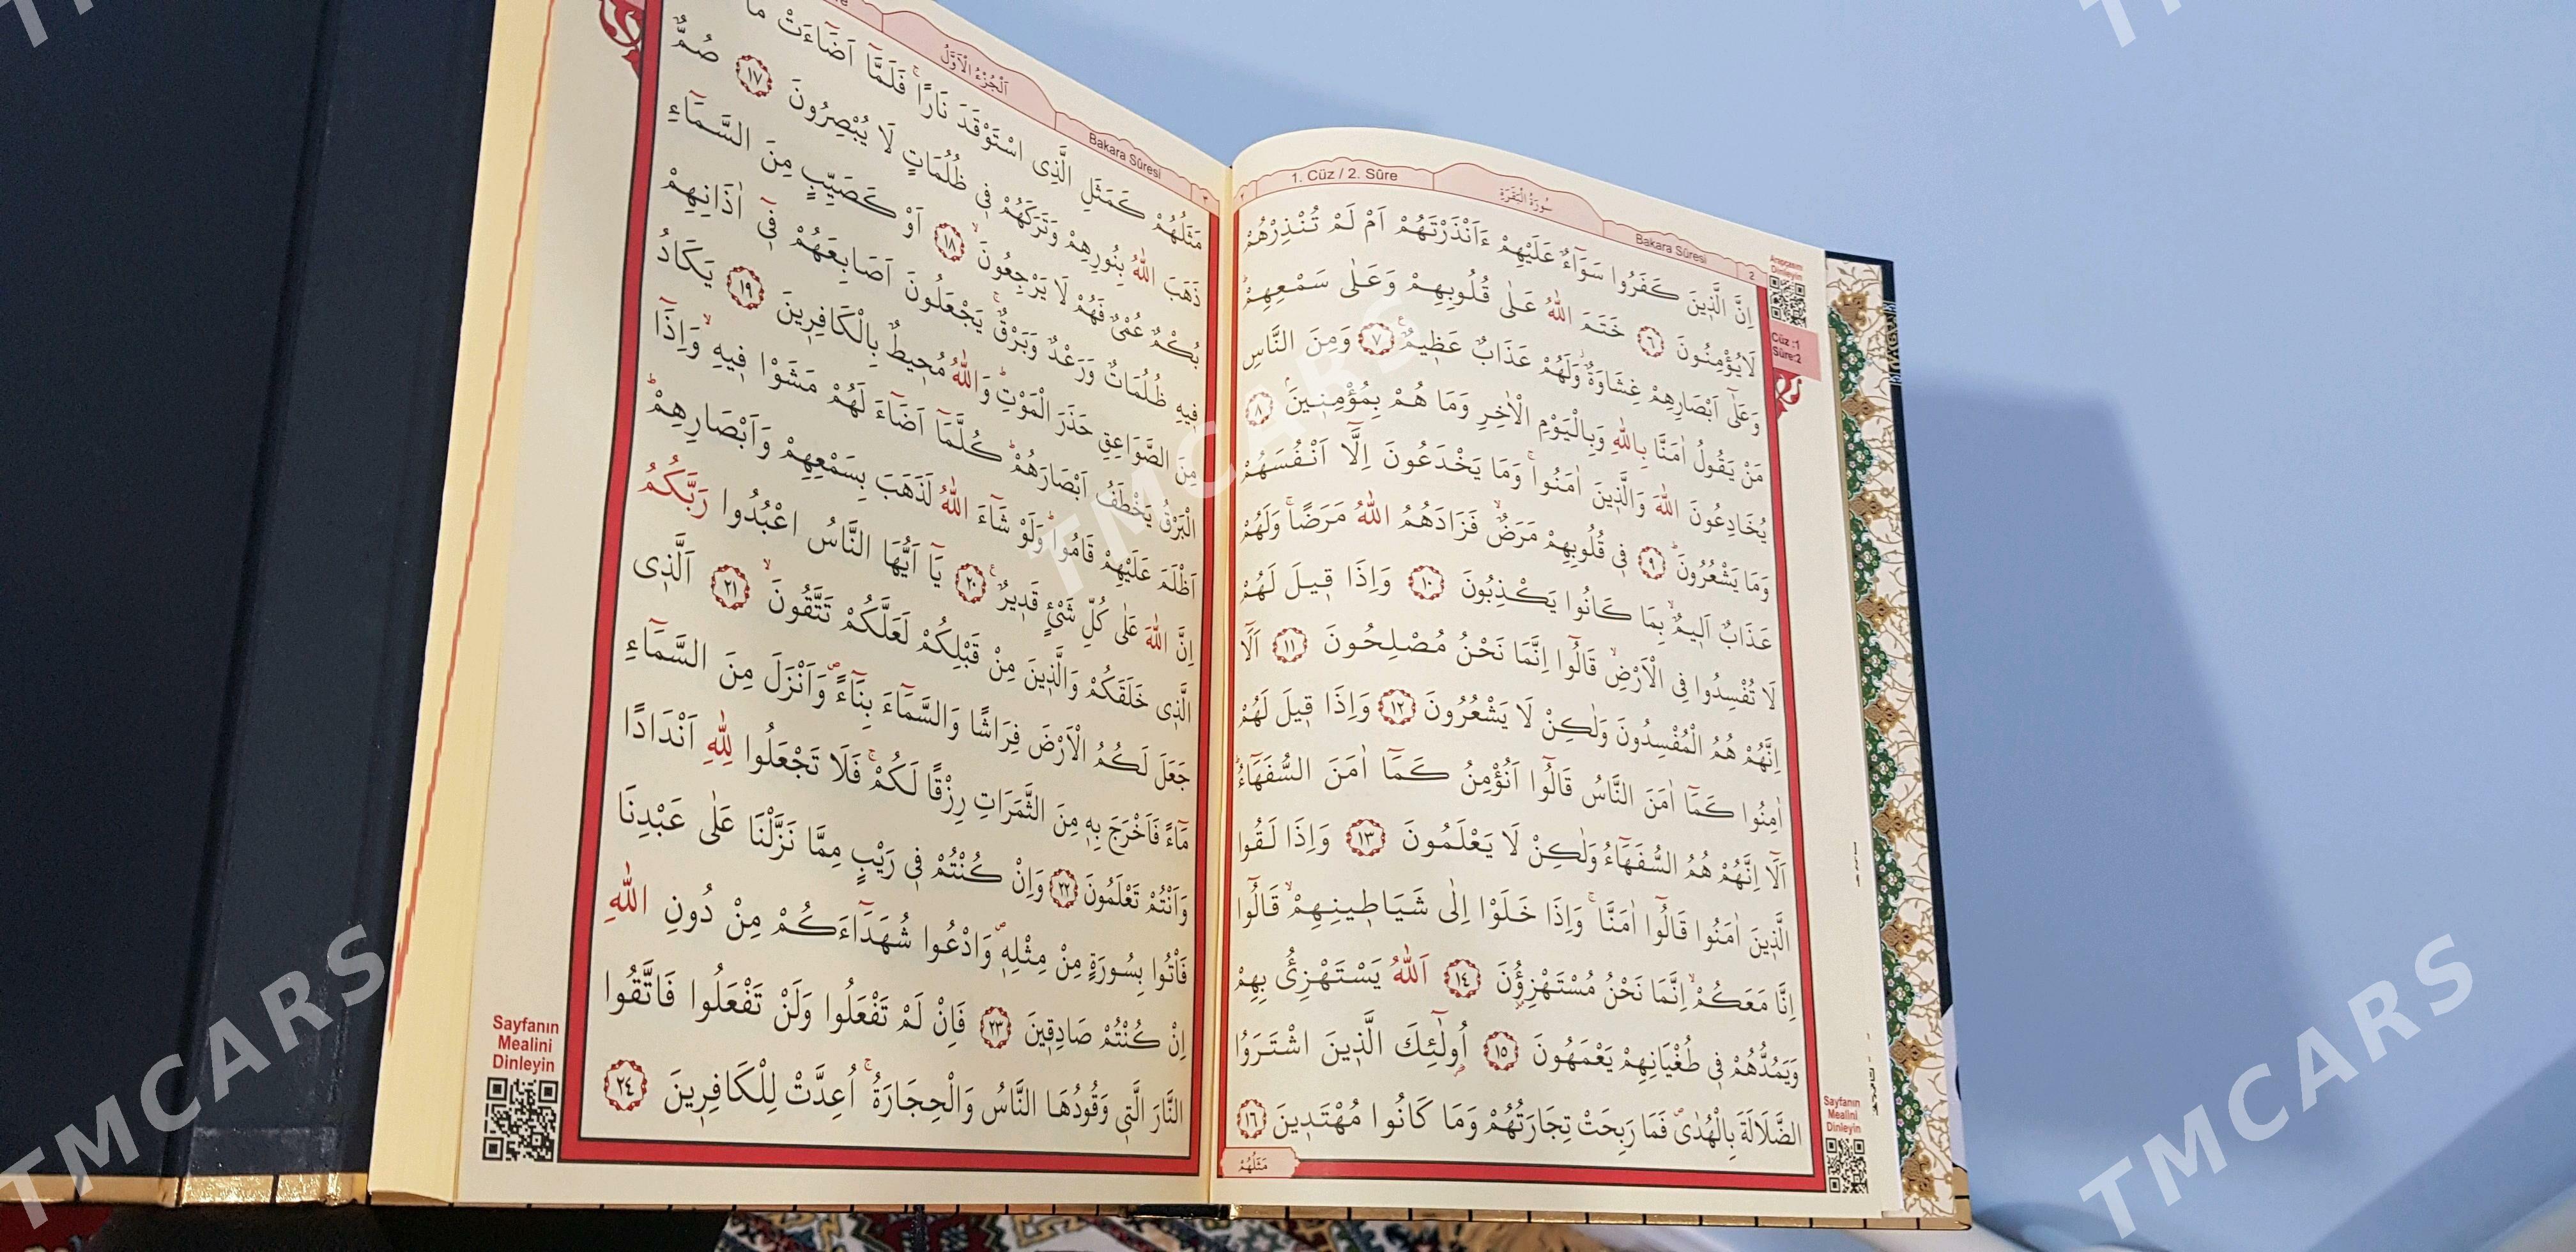 1. Cüz / 2. Sûre
سُورَةُ الْبَقَرَةِ
Bakara Sûresi
2
٢
Arapçasını
Dinleyin
Cüz :1
Sûre:2
اِنَّ الَّذ۪ينَ كَفَرُوا سَوَٓاءٌ عَلَيْهِمْ ءَاَنْذَرْتَهُمْ اَمْ لَمْ تُنْذِرْهُمْ
لَايُؤْمِنُونَ ﴿٦﴾ خَتَمَ اللّٰهُ عَلٰى قُلُوبِهِمْ وَعَلٰى سَمْعِهِمْۜ
وَعَلٰٓى اَبْصَارِهِمْ غِشَاوَةٌۘ وَلَهُمْ عَذَابٌ عَظ۪يمٌ۟ ﴿٧﴾ وَمِنَ النَّاسِ
مَنْ يَقُولُ اٰمَنَّا بِاللّٰهِ وَبِالْيَوْمِ الْاٰخِرِ وَمَا هُمْ بِمُؤْمِن۪ينَۢ ﴿٨﴾
يُخَادِعُونَ اللّٰهَ وَالَّذ۪ينَ اٰمَنُواۚ وَمَا يَخْدَعُونَ اِلَّٓا اَنْفُسَهُمْ
وَمَا يَشْعُرُونَۜ ﴿٩﴾ ف۪ي قُلُوبِهِمْ مَرَضٌۙ فَزَادَهُمُ اللّٰهُ مَرَضًاۚ وَلَهُمْ
عَذَابٌ اَل۪يمٌۙ بِمَا كَانُوا يَكْذِبُونَ ﴿١٠﴾ وَاِذَا ق۪يلَ لَهُمْ
لَا تُفْسِدُوا فِي الْاَرْضِۙ قَالُٓوا اِنَّمَا نَحْنُ مُصْلِحُونَ ﴿١١﴾ اَلَٓا
اِنَّهُمْ هُمُ الْمُفْسِدُونَ وَلٰكِنْ لَا يَشْعُرُونَ ﴿١٢﴾ وَاِذَا ق۪يلَ لَهُمْ
اٰمِنُوا كَمَٓا اٰمَنَ النَّاسُ قَالُٓوا اَنُؤْمِنُ كَمَٓا اٰمَنَ السُّفَهَٓاءُۜ
اَلَٓا اِنَّهُمْ هُمُ السُّفَهَٓاءُ وَلٰكِنْ لَا يَعْلَمُونَ ﴿١٣﴾ وَاِذَا لَقُوا
الَّذ۪ينَ اٰمَنُوا قَالُٓوا اٰمَنَّاۚ وَاِذَا خَلَوْا اِلٰى شَيَاط۪ينِهِمْۙ قَالُٓوا
اِنَّا مَعَكُمْۙ اِنَّمَا نَحْنُ مُسْتَهْزِؤُ۫نَ ﴿١٤﴾ اَللّٰهُ يَسْتَهْزِئُ بِهِمْ
وَيَمُدُّهُمْ ف۪ي طُغْيَانِهِمْ يَعْمَهُونَ ﴿١٥﴾ اُو۬لٰٓئِكَ الَّذ۪ينَ اشْتَرَوُا
الضَّلَالَةَ بِالْهُدٰىۖ فَمَا رَبِحَتْ تِجَارَتُهُمْ وَمَا كَانُوا مُهْتَد۪ينَ ﴿١٦﴾
مَثَلُهُمْ
Sayfanın
Mealini
Dinleyin
اَلْجُزْءُ الْاَوَّلُ
Bakara Sûresi
٣
مَثَلُهُمْ كَمَثَلِ الَّذِي اسْتَوْقَدَ نَارًاۚ فَلَمَّٓا اَضَٓاءَتْ مَا
ذَهَبَ اللّٰهُ بِنُورِهِمْ وَتَرَكَهُمْ ف۪ي ظُلُمَاتٍ لَا يُبْصِرُونَ ﴿١٧﴾ صُمٌّ
بُكْمٌ عُمْيٌ فَهُمْ لَا يَرْجِعُونَۙ ﴿١٨﴾ اَوْ كَصَيِّبٍ مِنَ السَّمَٓاءِ
ف۪يهِ ظُلُمَاتٌ وَرَعْدٌ وَبَرْقٌۚ يَجْعَلُونَ اَصَابِعَهُمْ ف۪ٓي اٰذَانِهِمْ
مِنَ الصَّوَاعِقِ حَذَرَ الْمَوْتِۜ وَاللّٰهُ مُح۪يطٌ بِالْكَافِر۪ينَ ﴿١٩﴾ يَكَادُ
الْبَرْقُ يَخْطَفُ اَبْصَارَهُمْۜ كُلَّمَٓا اَضَٓاءَ لَهُمْ مَشَوْا ف۪يهِۙ وَاِذَٓا
اَظْلَمَ عَلَيْهِمْ قَامُواۜ وَلَوْ شَٓاءَ اللّٰهُ لَذَهَبَ بِسَمْعِهِمْ وَاَبْصَارِهِمْۜ
اِنَّ اللّٰهَ عَلٰى كُلِّ شَيْءٍ قَد۪يرٌ۟ ﴿٢٠﴾ يَٓا اَيُّهَا النَّاسُ اعْبُدُوا رَبَّكُمُ
الَّذ۪ي خَلَقَكُمْ وَالَّذ۪ينَ مِنْ قَبْلِكُمْ لَعَلَّكُمْ تَتَّقُونَۙ ﴿٢١﴾ اَلَّذ۪ي
جَعَلَ لَكُمُ الْاَرْضَ فِرَاشًا وَالسَّمَٓاءَ بِنَٓاءًۖ وَاَنْزَلَ مِنَ السَّمَٓاءِ
مَٓاءً فَاَخْرَجَ بِه۪ مِنَ الثَّمَرَاتِ رِزْقًا لَكُمْۚ فَلَا تَجْعَلُوا لِلّٰهِ اَنْدَادًا
وَاَنْتُمْ تَعْلَمُونَ ﴿٢٢﴾ وَاِنْ كُنْتُمْ ف۪ي رَيْبٍ مِمَّا نَزَّلْنَا عَلٰى عَبْدِنَا
فَأْتُوا بِسُورَةٍ مِنْ مِثْلِه۪ۖ وَادْعُوا شُهَدَٓاءَكُمْ مِنْ دُونِ اللّٰهِ
اِنْ كُنْتُمْ صَادِق۪ينَ ﴿٢٣﴾ فَاِنْ لَمْ تَفْعَلُوا وَلَنْ تَفْعَلُوا فَاتَّقُوا
النَّارَ الَّت۪ي وَقُودُهَا النَّاسُ وَالْحِجَارَةُۚ اُعِدَّتْ لِلْكَافِر۪ينَ ﴿٢٤﴾
Sayfanın
Mealini
Dinleyin
TMCARS
TMCARS
TMCARS